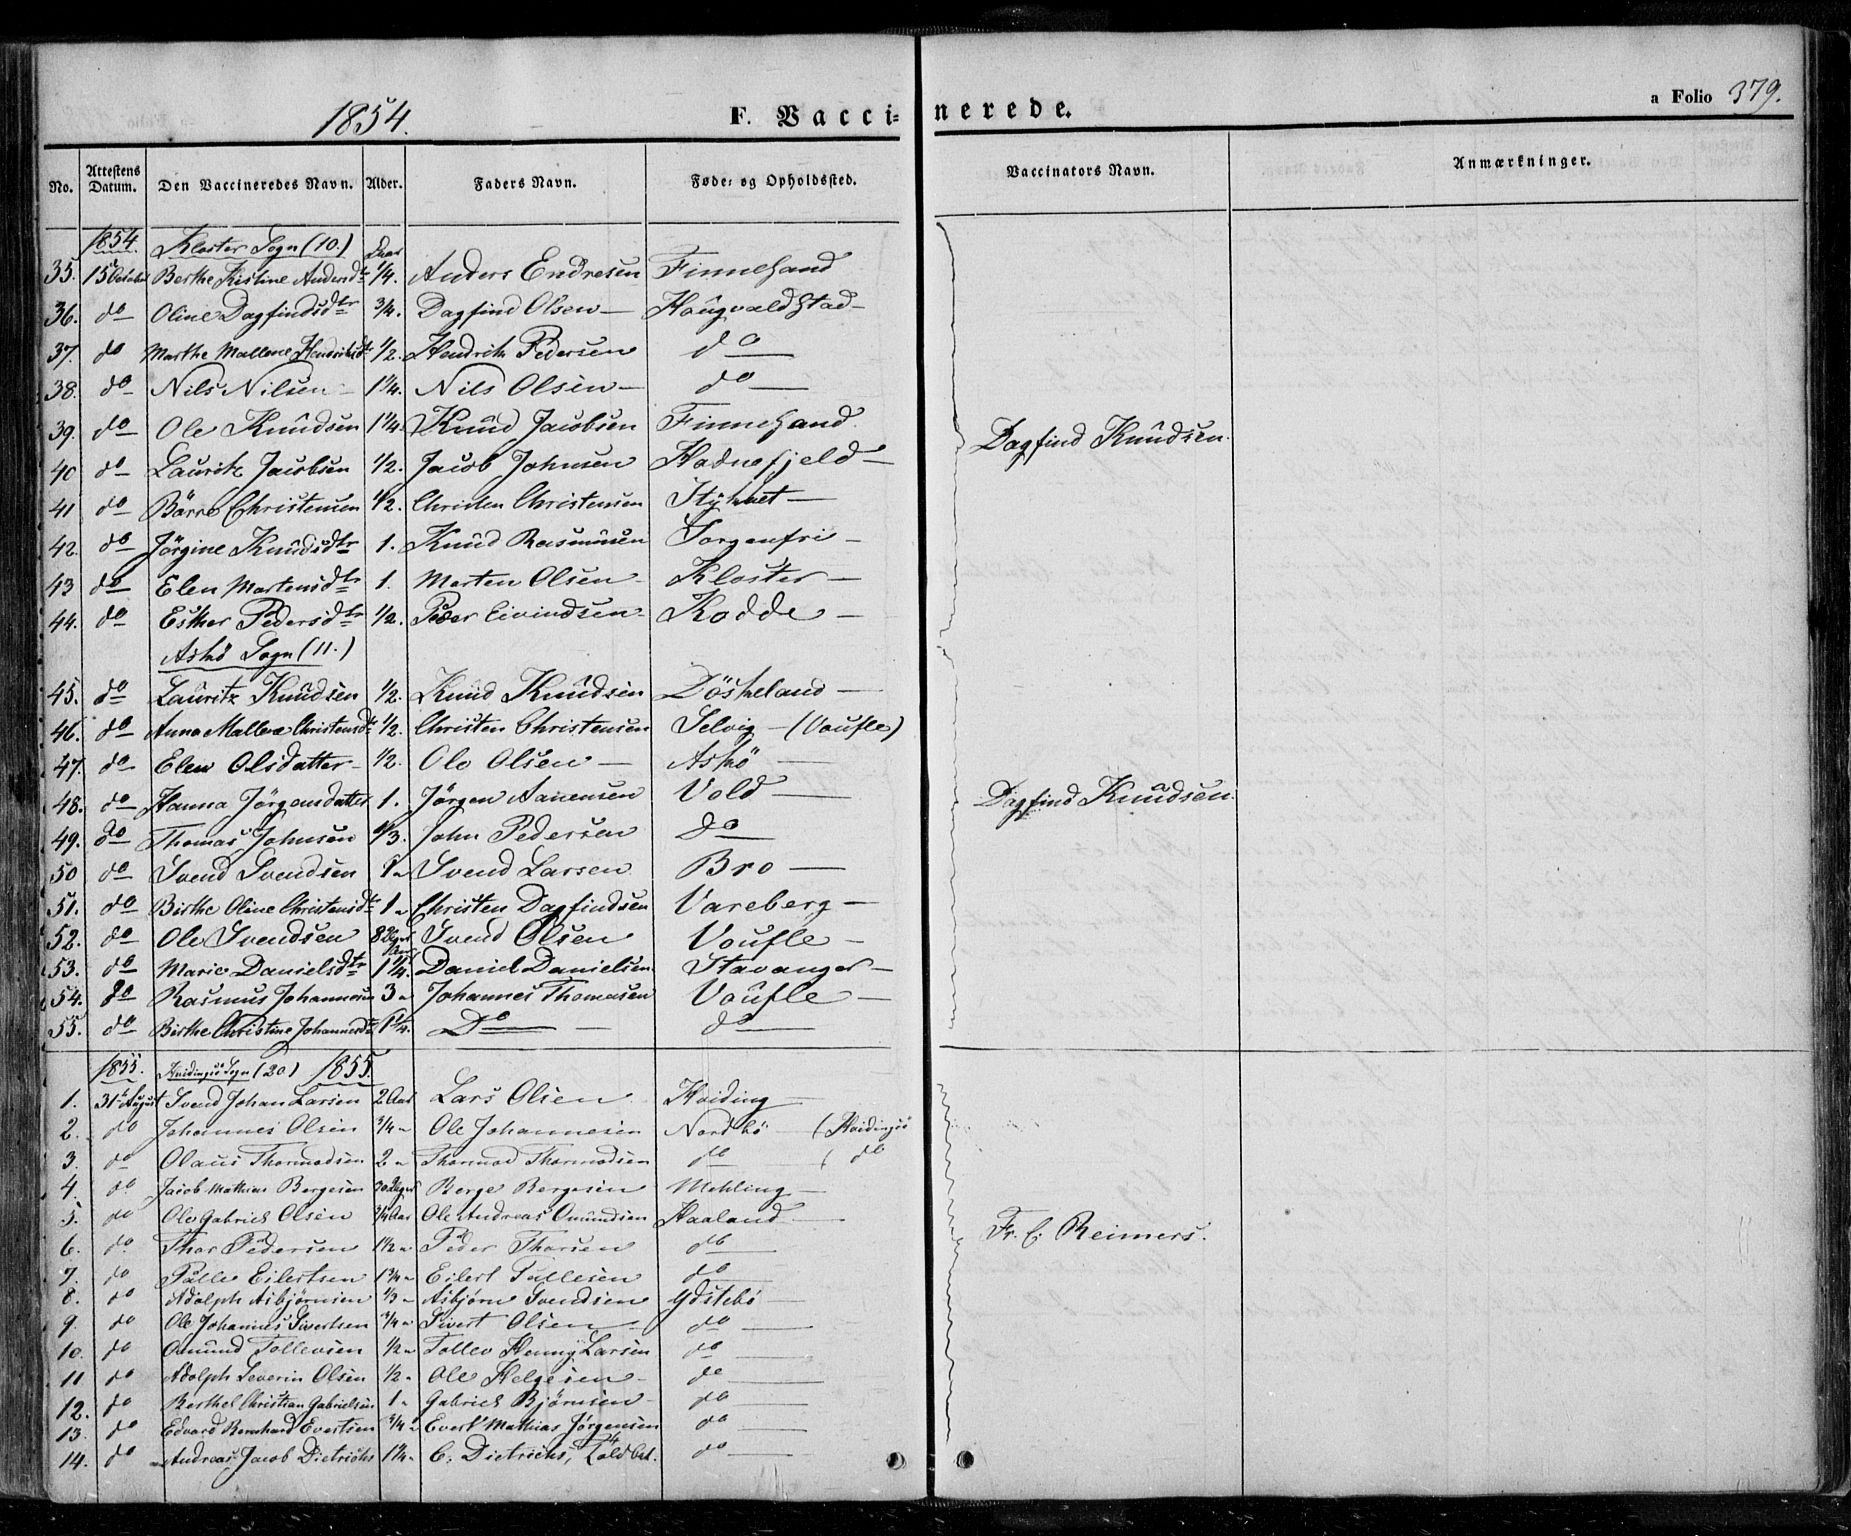 1854. F. Vaccinerede. a Folio 379.
No. Attestens Datum. Den Vaccineredes Navn. Alder. Faders Navn. Føde- og Opholdssted. Vaccinators Navn. Anmærkninger.
1854. Kloster Sogn (10.) Aar
35. 15 October Berthe Kistine Andersdtr 1/4. Anders Endresen Finnesand
36. do Oline Dagfindsdtr 3/4. Dagfind Olsen Haugvaldstad
37. do Marthe Mallene Hendriksdtr 1/2. Hendrik Pedersen do
38. do Nils Nilsen 1 1/4. Nils Olsen do
39. do Ole Knudsen 1 1/4. Knud Jacobsen Finnesand. Dagfind Knudsen.
40 do Lauritz Jacobsen 1/2. Jacob Johnsen Hodnefjeld
41 do Börre Christensen 1/2. Christen Christensen
42. do Jörgine Knudsdtr 1. Knud Rasmusen Sorgenfri
43 do Elen Mortensdtr 1. Morten Olsen Kloster
44. do Esther Pedersdtr 1/2. Peder Eivindsen Kodde
Askö Sogn (11.)
45. do Lauritz Knudsen 1/2. Knud Knudsen Döskeland
46. do Anna Mallene Christensdtr 1/2. Christen Christensen Selvig (Voufle)
47. do Elen Olsdatter 1/2. Ole Olsen Askö
48. do Hanna Jörgensdatter 1. Jörgen Aanensen Vold Dagfind Knudsen.
49. do Thomas Johnsen 1/3. John Pedersen do
50 do Svend Svendsen 1 " Svend Larsen Bro
51. do Birthe Oline Christensdtr 1 " Christen Dagfindsen Vareberg
52. do Ole Svendsen 8 Uger Svend Olsen Voufle
53. do Marie Danielsdtr 1 1/4. Daniel Danielsen Stavanger
54. do Rasmus Johannesen 3 " Johannes Thomasen Voufle
55. do Birthe Christine Johannesdtr 1 1/4. Do do
1855. Hvidingsö Sogn (20) 1855.
1. 31te August Svend Johan Larsen 2 Aar Lars Olsen Hviding
2. do Johannes Olsen 3/4 " Ole Johannesen Nordbö (Hvidingsö
3. do Olaus Thormodsen 2 " Thormod Thormodsen do ( do
4. do Jacob Mathias Bergesen 30 Uger Berge Bergesen Mehling
5. do Ole Gabriel Olsen 3/4 Aar Ole Andreas Omundsen Haaland Fr. C. Reimers.
6. do Thor Pedersen 1 1/2 " Peder Thorsen do
7. do Palle Eilertsen 1 3/4 " Eilert Pallesen do
8. do Adolph Asbjörnsen 1/3 " Asbjörn Svendsen Ydstebö
9. do Ole Johannes Sivertsen 3/4 " Sivert Olsen do
10. do Omund Tollevsen 1/2 " Tollev Henny Larsen do
11 do Adolph Severin Olsen 1/2 " Ole Helgesen do
12. do Berthel Christian Gabrielsen 1 " Gabriel Bjørnsen do
13. do Edvard Bernhard Evertsen 3/4 " Evert Mathias Jørgensen do
14. do Andreas Jacob Dietrichs 1 1/4 " C. Dietrichs, do